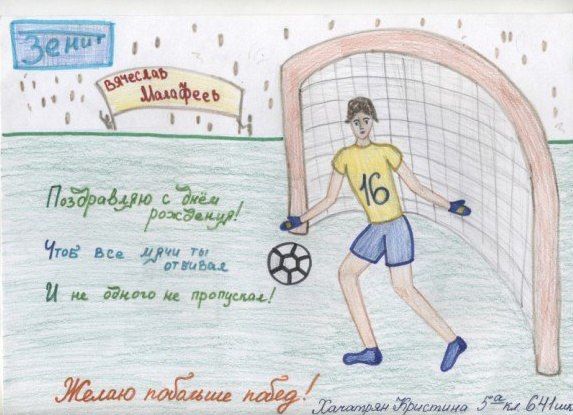 Зенит
Вячеслав
Малафеев
16
Поздравляю с днём
рождения!
Чтоб все мячи ты
отбивал
И не одного не пропускал!
Желаю побольше побед!
Хачатрян Кристина 5а кл 641 шк